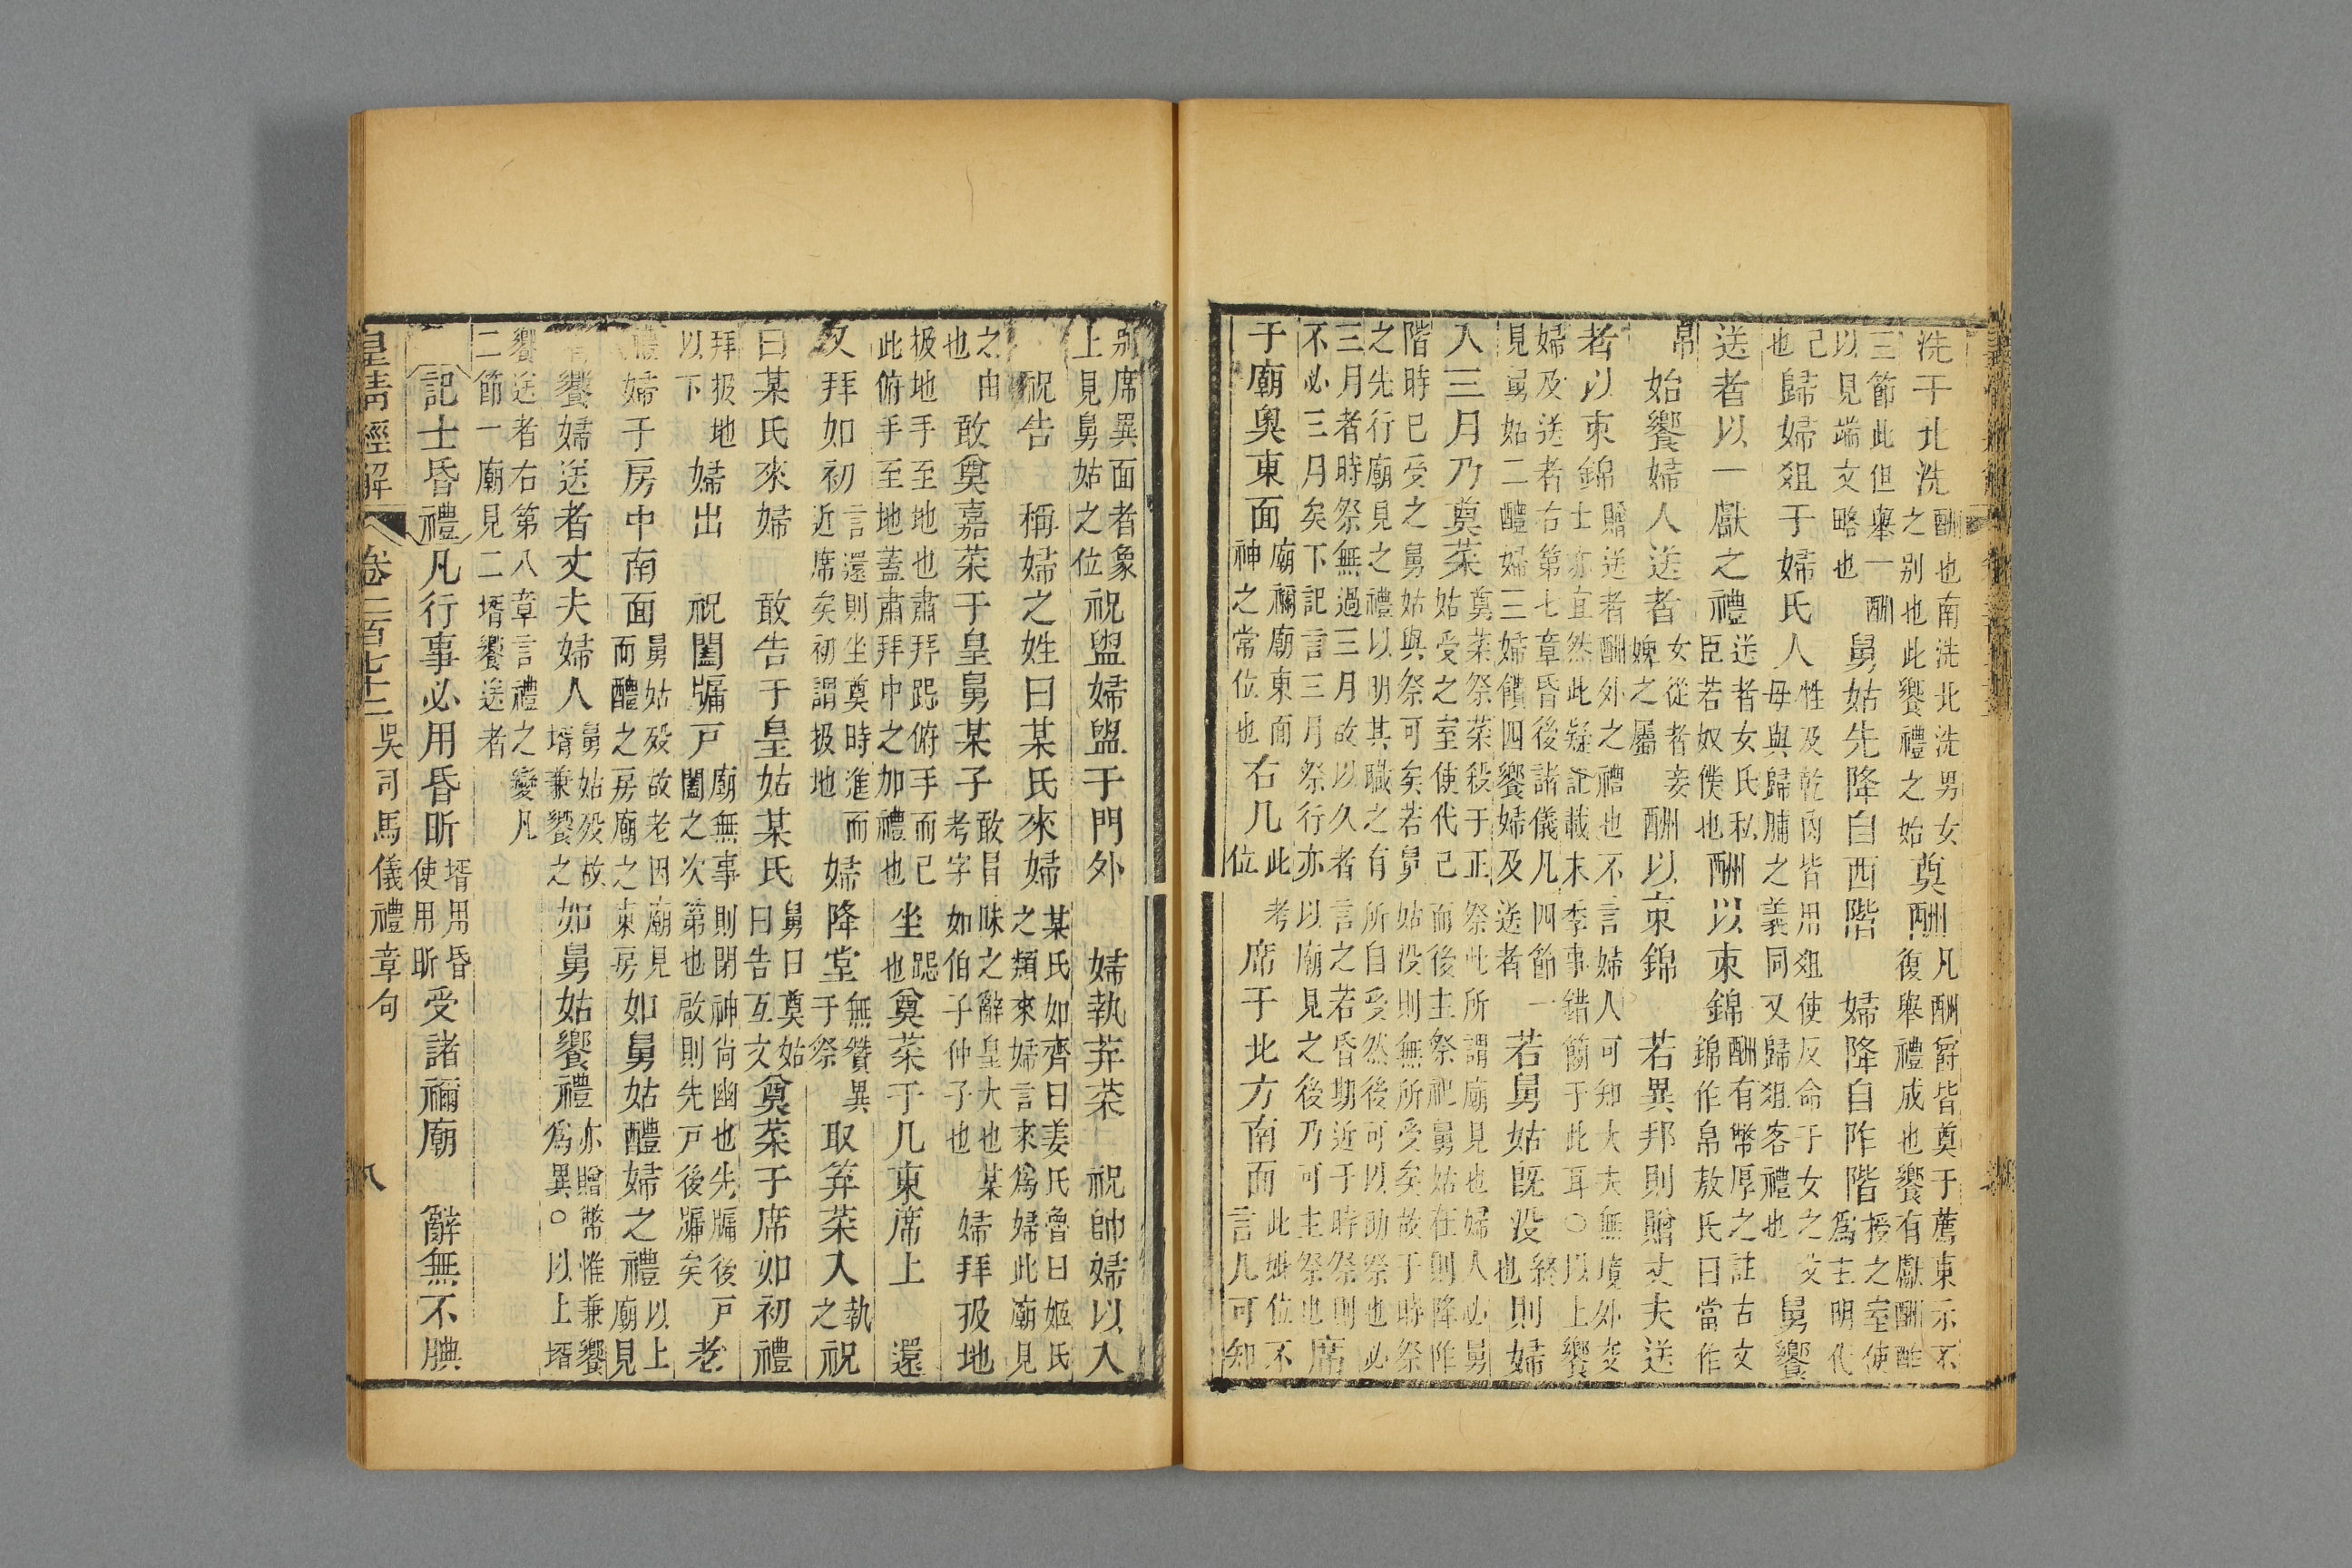 洗于北洗酬也南洗北洗男女之別也此饗禮之始奠酬凡酬爵皆奠于薦東示不復舉禮成也饗有獻酬酢
三節此但舉一酬以見端文略也舅姑先降自西階　婦降自阼階授之室使爲主明代
己也歸婦俎于婦氏人牲及乾肉皆用俎使反命于女之父毋與歸脯之義同又歸俎客禮也舅饗
送者以一獻之禮送者女氏私臣若奴僕也酬以束錦酬有幣厚之註古文錦作帛敖氏曰當作
帛　姑饗婦人送者女從者妾婢之屬酬以束錦　若異邦則贈丈夫送
者以束錦贈送者酬外之禮也不言婦人可知大夫無境外交士亦宜然此疑記載末季事錯簡于此耳○以上饗
婦及送者右第七章昏後諸儀凡四節一見舅姑二醴婦三婦饋四饗婦及送者若舅姑既没終也則婦
入三月乃奠菜奠菜祭菜殺于正祭此所謂廟見也婦人必舅姑受之室使代己而後主祭祀舅姑在則降阼
階時已受之舅姑與祭可矣若舅姑没則無所受矣故于時祭之先行廟見之禮以明其職之有所自受然後可以助祭也必
三月者時祭無過三月故以久者言之若昏期近于時祭則不必三月矣下記言三月祭行亦以廟見之後乃可主祭也席
于廟奧東面廟禰廟東面神之常位也右几此考位席于北方南面此妣位不言几可知
别席異面者象上見舅姑之位祝盥婦盥于門外　婦執笲菜　祝帥婦以入
祝告　稱婦之姓曰某氏來婦某氏如齊曰姜氏魯曰姬氏之類來婦言來爲婦此廟見
之由也敢奠嘉菜于皇舅某子敢冒昧之辭皇大也某考字如伯子仲子也婦拜扱地
扱地手至地也肅拜跽俯手而已此俯手至地蓋肅拜中之加禮也坐跽也奠菜于几東席上　還
又拜如初言還則坐奠時進而近席矣初謂扱地婦降堂無贊異于祭取笲菜入執之祝
曰某氏來婦　敢告于皇姑某氏舅曰奠姑曰告互文奠菜于席如初禮
拜扱地以下婦出　祝闔牖戸廟無事則閉神尚幽也先牖後戸闔之次第也啟則先戸後牖矣老
醴婦于房中南面舅姑殁故老因廟見而醴之房廟之東房如舅姑醴婦之禮以上廟見
壻饗婦送者丈夫婦人舅姑殁故壻兼饗之如舅姑饗禮亦贈幣惟兼饗爲異○以上壻
饗送者右第八章言禮之變凡二節一廟見二壻饗送者
記士昏禮凡行事必用昏昕壻用昏使用昕受諸禰廟　辭無不腆
皇清經解　卷二百七十二　吳司馬儀禮章句　八